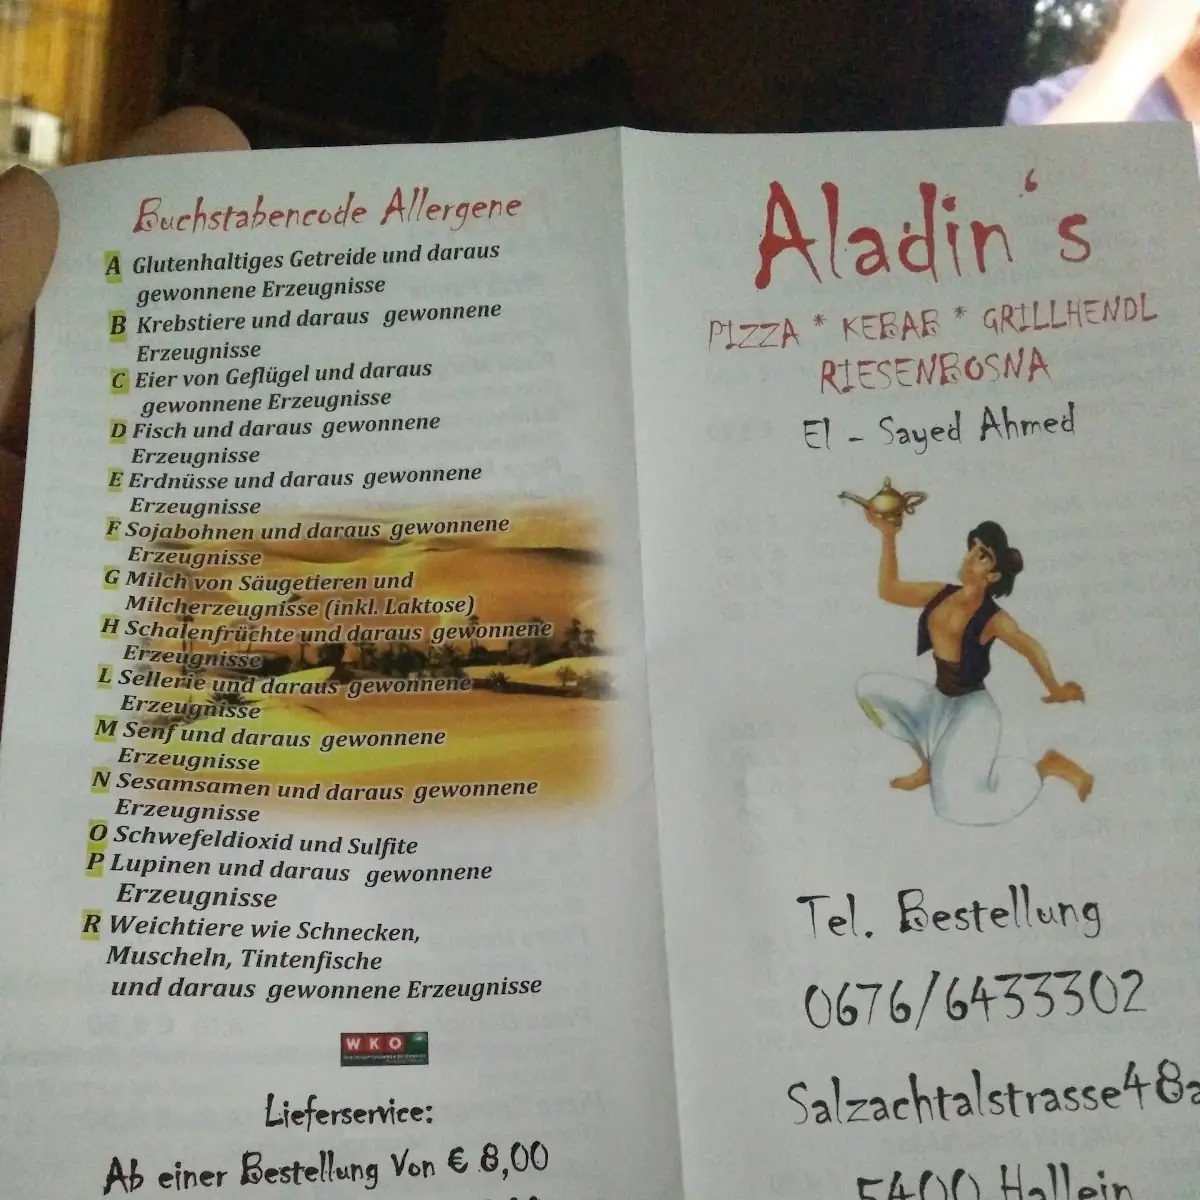 Buchstabencode Allergene
A Glutenhaltiges Getreide und daraus
gewonnene Erzeugnisse
B Krebstiere und daraus gewonnene
Erzeugnisse
C Eier von Geflügel und daraus
gewonnene Erzeugnisse
D Fisch und daraus gewonnene
Erzeugnisse
E Erdnüsse und daraus gewonnene
Erzeugnisse
F Sojabohnen und daraus gewonnene
Erzeugnisse
G Milch von Säugetieren und
Milcherzeugnisse (inkl. Laktose)
H Schalenfrüchte und daraus gewonnene
Erzeugnisse
L Sellerie und daraus gewonnene
Erzeugnisse
M Senf und daraus gewonnene
Erzeugnisse
N Sesamsamen und daraus gewonnene
Erzeugnisse
O Schwefeldioxid und Sulfite
P Lupinen und daraus gewonnene
Erzeugnisse
R Weichtiere wie Schnecken,
Muscheln, Tintenfische
und daraus gewonnene Erzeugnisse
WKO
Lieferservice:
Ab einer Bestellung Von € 8,00
Aladin´s
PIZZA * KEBAB * GRILLHENDL
RIESENBOSNA
El - Sayed Ahmed
Tel. Bestellung
0676/6433302
Salzachtalstrasse48a
5400 Hallein